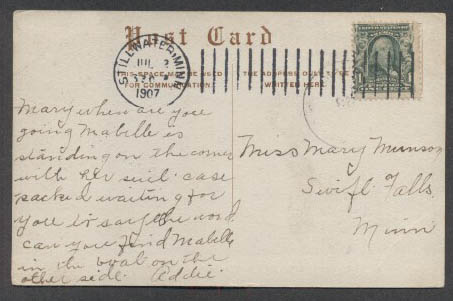 Post Card
STILLWATER, MINN.
JUL 3
1907
THIS SPACE MAY BE USED
FOR COMMUNICATION.
THE ADDRESS ONLY TO BE
WRITTEN HERE.
Mary when are you
going Mabelle is
standing on the corner
with her suit case
packed waiting for
you to say the word
can you find Mabelle
in the boat on the
other side. Addie.
Miss Mary Munson
Swift Falls
Minn